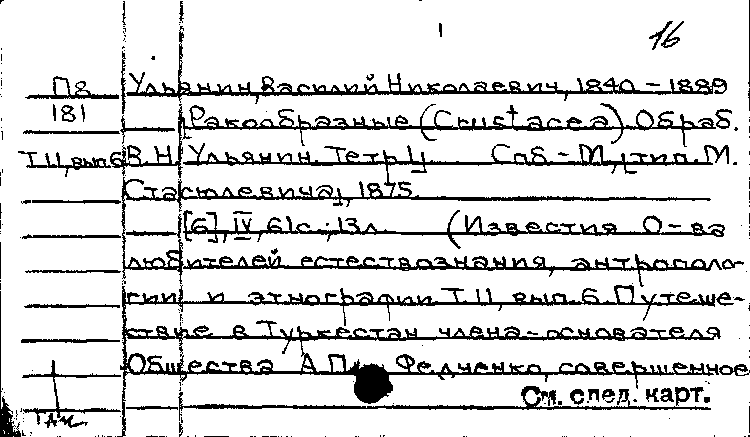 16
П8 Ульянин, Василий Николаевич, 1840-1889
181 [Ракообразные (Crustacea). Обраб.
Т.11, вып.6 В.Н. Ульянин. Тетр.1]. Спб.-М., [тип. М.
Стасюлевича], 1875.
[6], IV, 61 с.; 13 л. (Известия О-ва
любителей естествознания, антрополо-
гии и этнографии Т.11, вып.6. Путеше-
ствие в Туркестан члена-основателя
Общества А.П. Федченко, совершенное
См. след. карт.